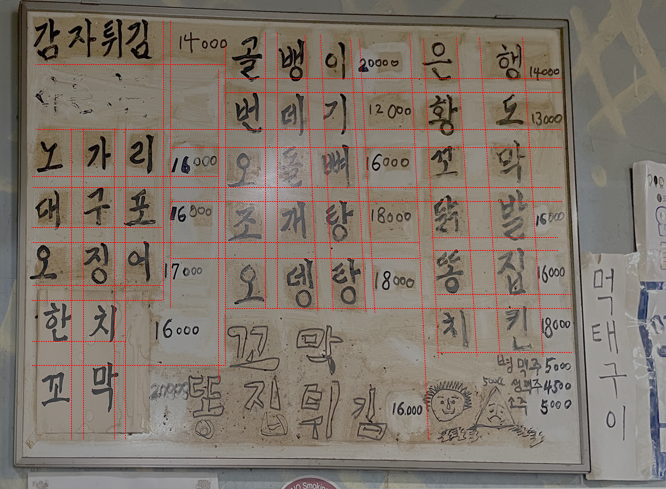 감자튀김 14000
노가리 16000
대구포 16000
오징어 17000
한치 16000
꼬막 20000
골뱅이 20000
번데기 12000
오돌뼈 16000
조개탕 18000
오뎅탕 18000
꼬막
똥집튀김 16.000
은행 14000
황도 13000
꼬막
닭발 16000
똥집 16000
치킨 18000
병맥주 5000
생맥주 4500
소주 5000
먹태구이
NO Smoking